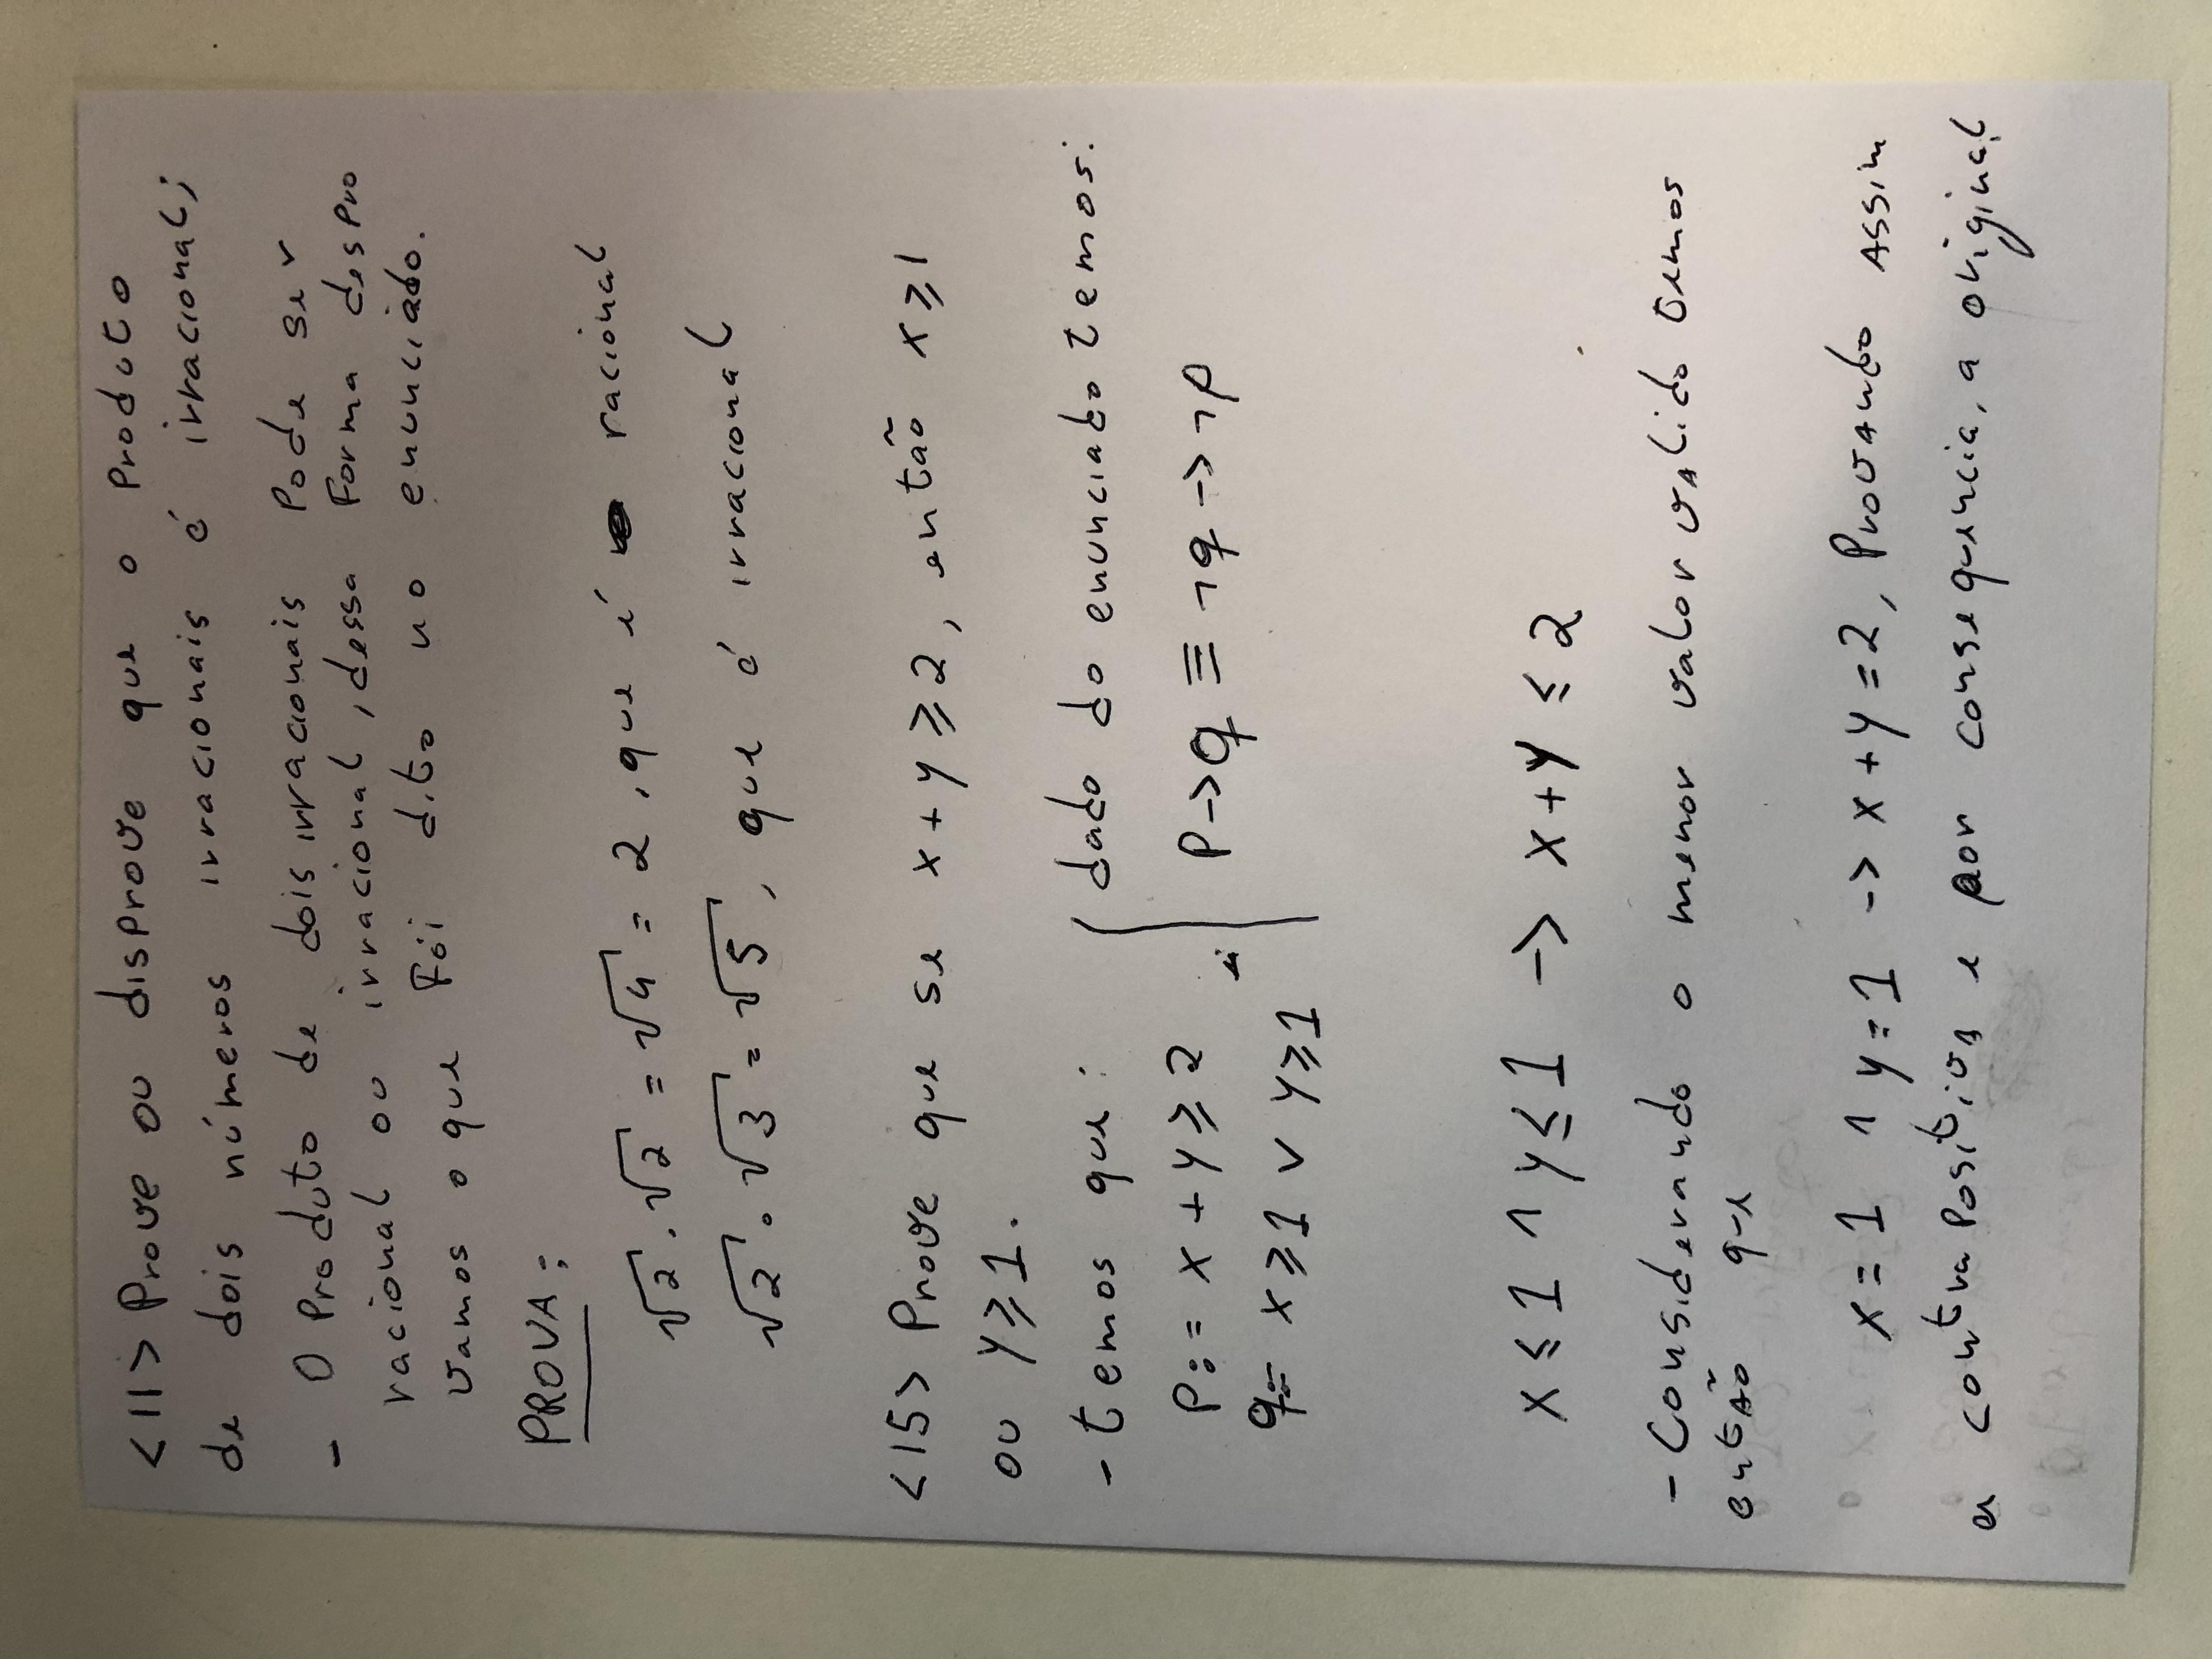 <11> Prove ou disprove que o produto
de dois números irracionais é irracional;
- O produto de dois irracionais pode ser
racional ou irracional, dessa forma despro
vamos o que foi dito no enunciado.
PROVA:
√2 . √2 = √4 = 2, que é racional
√2 . √3 = √5, que é irracional
<15> Prove que se x + y ⩾ 2, então x ⩾ 1
ou y ⩾ 1.
- temos que:
p := x + y ⩾ 2
q := x ⩾ 1 ∨ y ⩾ 1
dado do enunciado temos:
p -> q ≡ ¬q -> ¬p
x ≤ 1 ^ y ≤ 1 -> x + y ≤ 2
- Considerando o menor valor valido temos
então que
x = 1 ^ y = 1 -> x + y = 2, Provando assim
a contra positiva e por consequencia, a original